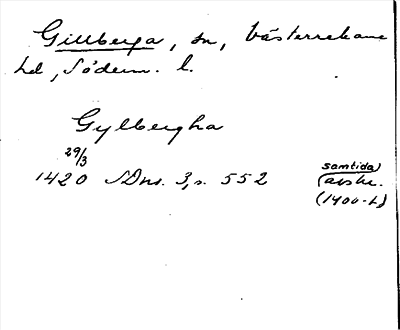 Gillberga, sn, Västerrekarne
hd, Söderm. l.
Gylbergha
29/3
1420 SDns. 3, s. 552 samtida
(avskr.
(1400-t)